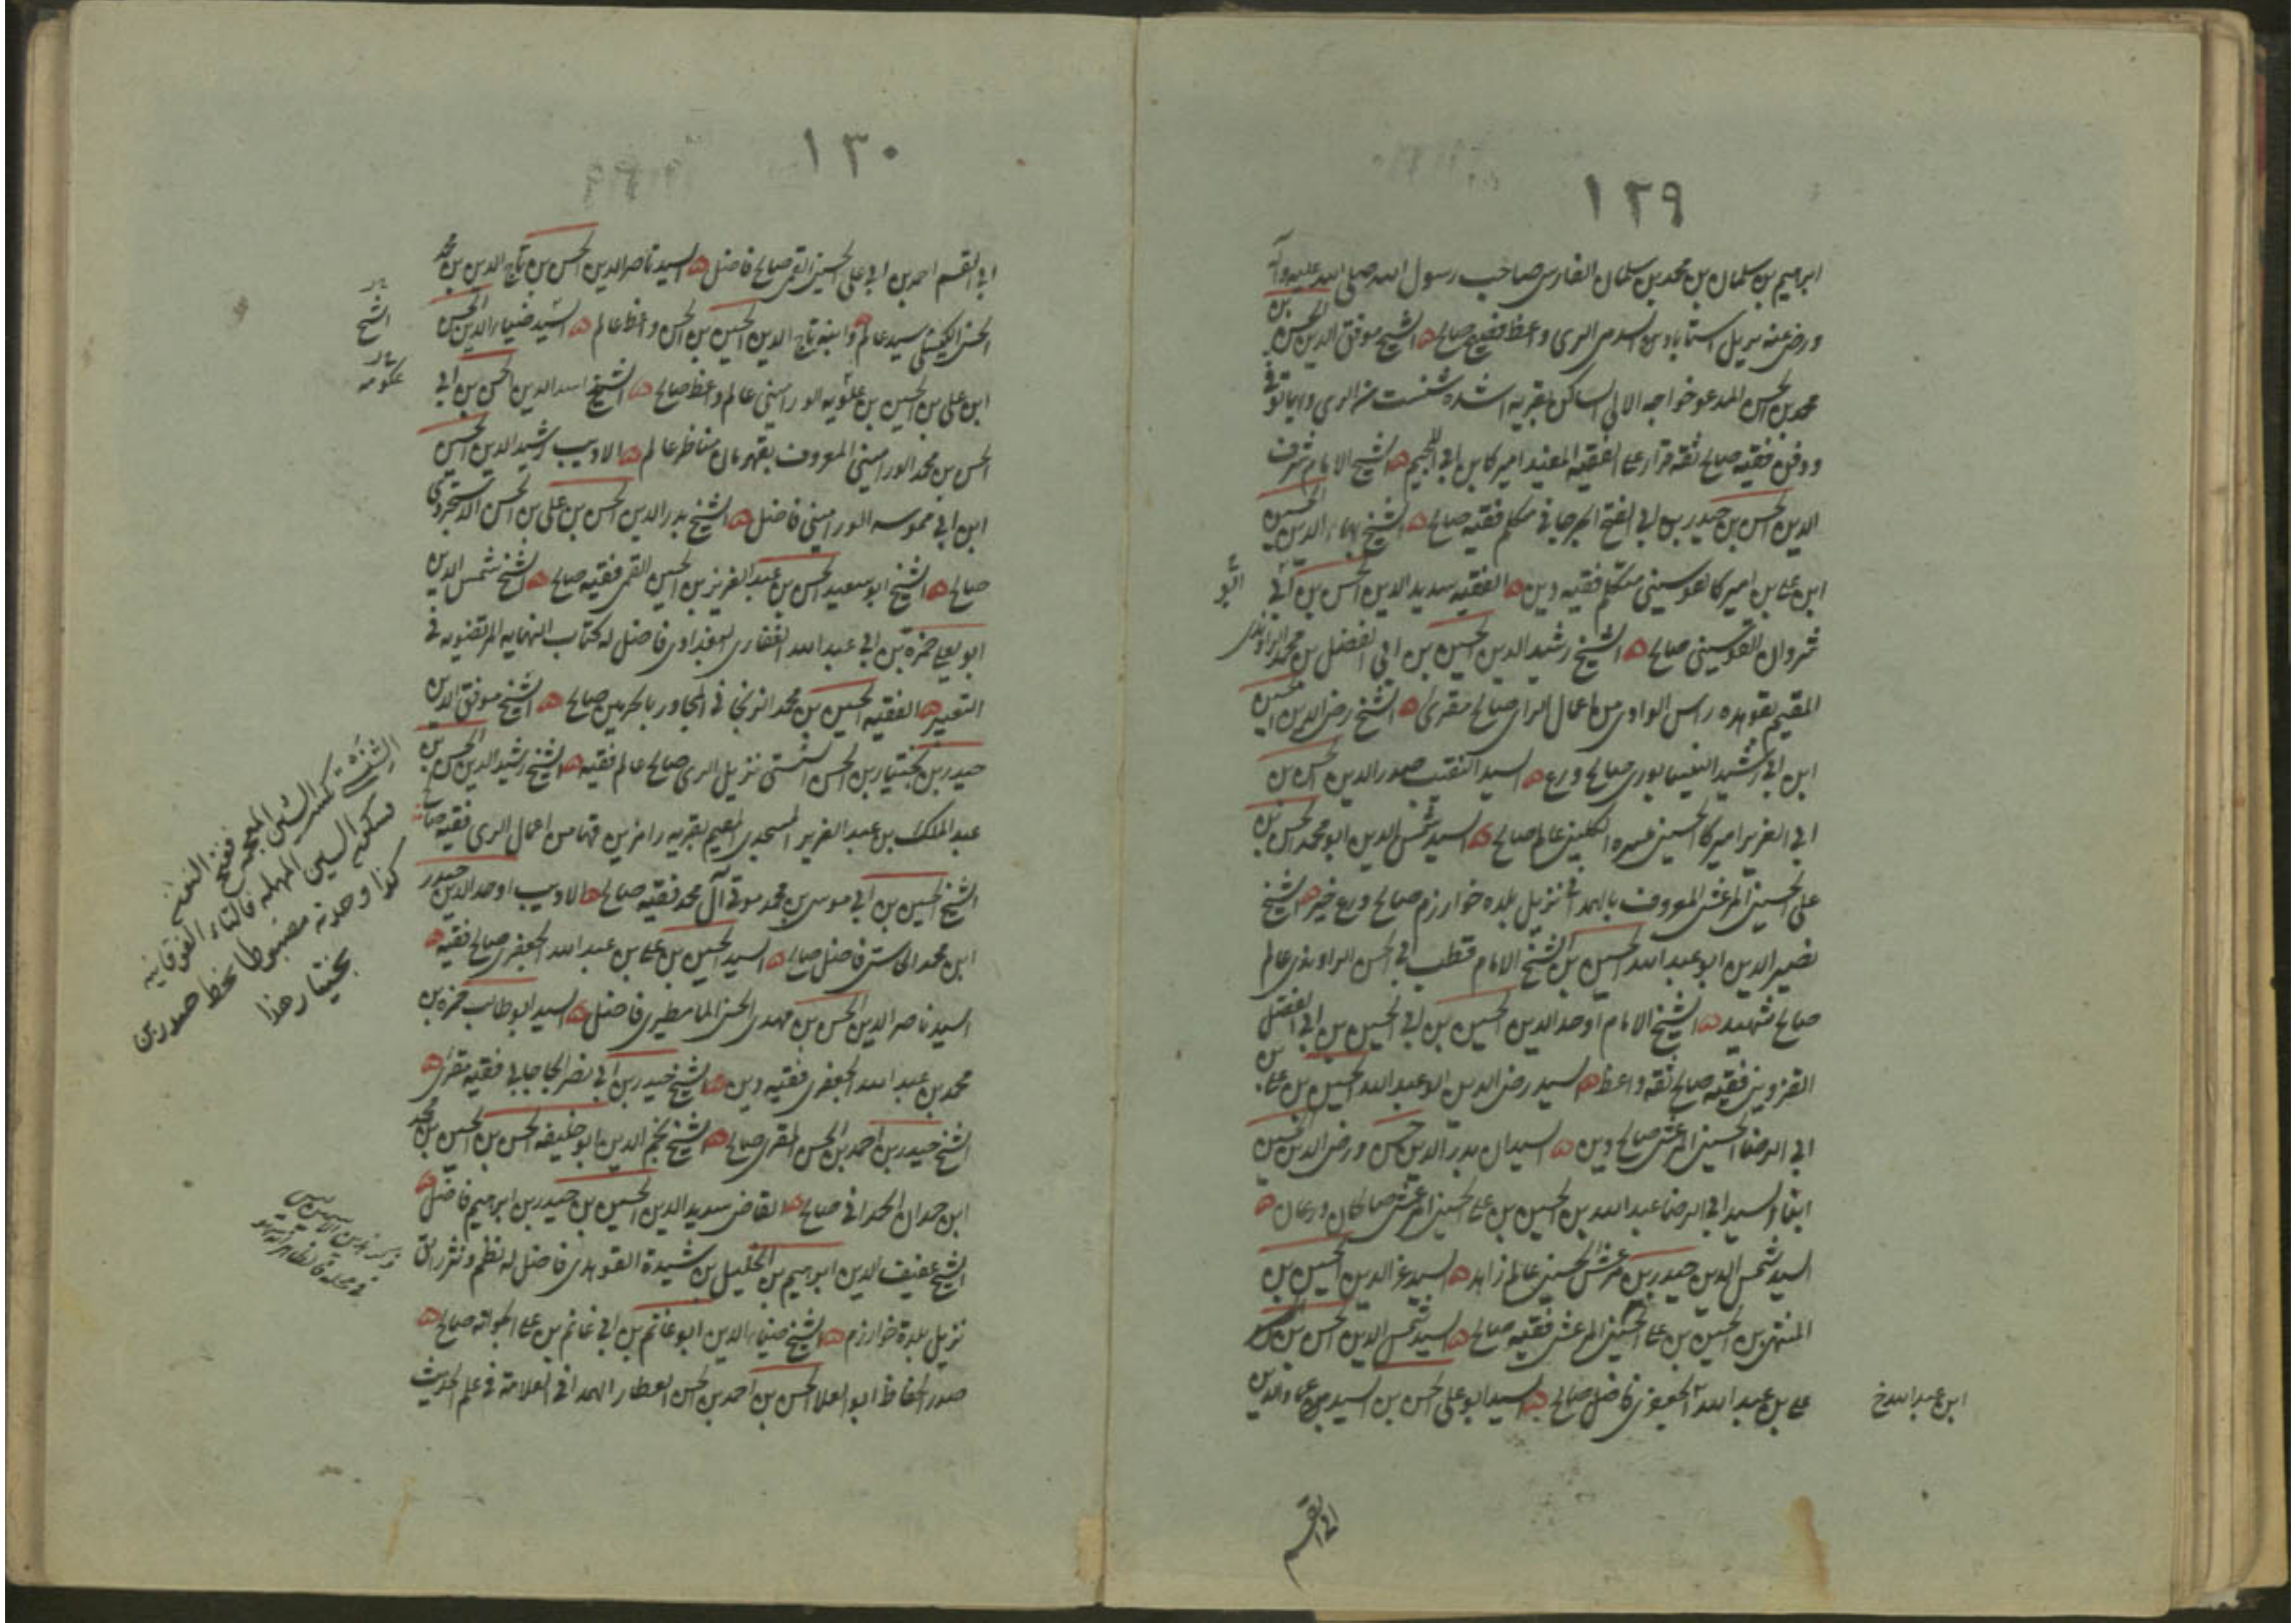 ١٢٩
ابرهيم بن سلمان بن محمد بن سلمان الفارسى صاحب رسول الله صلى الله عليه وآله
ورضى عنه نزيل السرى الرى واعظ فقيه صالح ه الشيخ موفق الدين الحسن بن
محمد بن الحسن المدعو خواجه الابى الساكن بقريه من الرى
ودفن فقيه صالح ثقه قرا على الفقيه المفيد اميركا بن ابى اللجيم ه الشيخ الامام شرف
الدين الحسن بن حيدر بن ابى الفتح الجرجانى متكلم فقيه صالح ه الشيخ بهاء الدين الحسن
ابن على بن اميركا القوسينى متكلم فقيه دين ه الفقيه سديد الدين الحسن بن
القوسينى صالح ه الشيخ رشيد الدين الحسين بن ابى الفضل بن محمد الراوندى
المقيم بقوهده راس الوادى من اعمال الرى صالح مقرى ه الشيخ رضى الدين الحسين
ابن ابى الرشيد النيسابورى صالح ورع ه السيد النقيب صدر الدين الحسن بن
ابى العزيز اميركا الحسينى الكلينى عالم صالح ه السيد شمس الدين ابو محمد الحسن بن
على الحسينى المرعشى المعروف بالهمدانى نزيل بلده خوارزم صالح ورع خير ه الشيخ
نصير الدين ابو عبد الله الحسين بن الشيخ الامام قطب ابى الحسن الراوندى عالم
صالح شهيد ه الشيخ الامام اوحد الدين الحسين بن ابى الحسين بن ابى الفضل
القزوينى فقيه صالح ثقه واعظ ه السيد رضى الدين ابو عبد الله الحسين بن على بن
ابى الرضا الحسينى المرعشى صالح دين ه السيدان بدر الدين حسن ورضى الدين حسين
ابنا السيد ابى الرضا عبد الله بن الحسين بن على الحسينى المرعشى صالحان ورعان ه
السيد شمس الدين حيدر بن مرعش الحسينى عالم زاهد ه السيد عز الدين الحسين بن
المنتهى بن الحسين بن على الحسينى المرعشى فقيه صالح ه السيد شمس الدين الحسن بن
على بن عبد الله الجعفرى فاضل صالح ه السيد ابو على الحسن بن السيد عماد الدين
ابن عبد الله خ
ابى القسم
١٣٠
ابى القسم احمد بن ابى على الحسينى القمى صالح فاضل ه السيد ناصر الدين الحسن بن تاج الدين بن محمد
الحسنى الكيسكى سيد عالم ه وابنه تاج الدين الحسين بن الحسن واعظ عالم ه السيد ضياء الدين الحسن
ابن على بن الحسين بن علويه الورامينى عالم واعظ صالح ه الشيخ اسد الدين الحسن بن ابى
الحسن بن محمد الورامينى المعروف بقهرمان مناظر عالم ه الاديب رشيد الدين الحسين
ابن ابى الورامينى فاضل ه الشيخ بدر الدين الحسن بن على بن الحسن الدستجردى
صالح ه الشيخ ابو سعيد الحسن بن عبد العزيز بن الحسين القمى فقيه صالح ه الشيخ شمس الدين
ابو يعلى حمزة بن ابى عبد الله الغفارى البغدادى فاضل له كتاب النهايه المرتضويه فى
التعبير ه الفقيه الحسين بن محمد الزنجانى المجاور بالحرمين صالح ه الشيخ موفق الدين
حيدر بن بختيار بن الحسن الشنستى نزيل الرى صالح عالم فقيه ه الشيخ رشيد الدين الحسن بن
عبد الملك بن عبد العزيز المسجدى المقيم بقريه رامزين قها من اعمال الرى فقيه صالح
الشيخ الحسين بن ابى موسى بن محمد موقى آل محمد فقيه صالح ه الاديب اوحد الدين حيدر
ابن محمد الجاستى فاضل صالح ه السيد الحسين بن على بن عبد الله الجعفرى صالح فقيه ه
السيد ناصر الدين الحسن بن مهدى الحسنى المامطيرى فاضل ه السيد ابو طالب حمزه بن
محمد بن عبد الله الجعفرى فقيه دين ه الشيخ حيدر بن ابى نصر الجاجابى فقيه مقرى ه
الشيخ حيدر بن احمد بن الحسن المقرى صالح ه الشيخ نجم الدين ابو خليفه الحسن بن الحسن بن محمد
ابن حمدان الحمدانى صالح ه القاضى سديد الدين الحسين بن حيدر بن ابرهيم فاضل ه
الشيخ عفيف الدين ابرهيم بن الخليل بن شيدة القوهدى فاضل له نظم ونثر رائق
نزيل بلدة خوارزم ه الشيخ ضياء الدين ابو غانم بن ابى غانم بن على الجوانه صالح ه
صدر الحفاظ ابو العلا الحسن بن احمد بن الحسن العطار الهمدانى العلامة فى علم الحديث
الشيخ
الشنستى بكسر الشين المعجمه وفتح النون
وسكون السين المهمله فالتاء الفوقانيه
كذا وجدته مضبوطا بخط حيدر بن
بختيار هذا